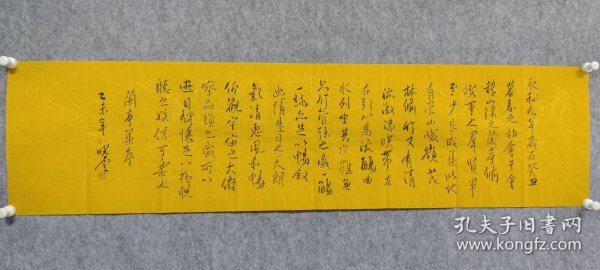 永和九年歲在癸丑
暮春之初會于會
稽山陰之蘭亭脩
禊事也羣賢畢
至少長咸集此地
有崇山峻嶺茂
林脩竹又有清
流激湍暎帶左
右引以為流觴曲
水列坐其次雖無
絲竹管弦之盛一觴
一詠亦足以暢敘
幽情是日也天朗
氣清惠風和暢
仰觀宇宙之大俯
察品類之盛所以
遊目騁懷足以極視
聽之娛信可樂也
蘭亭集序
乙未年
孔夫子旧书网
www.kongfz.com